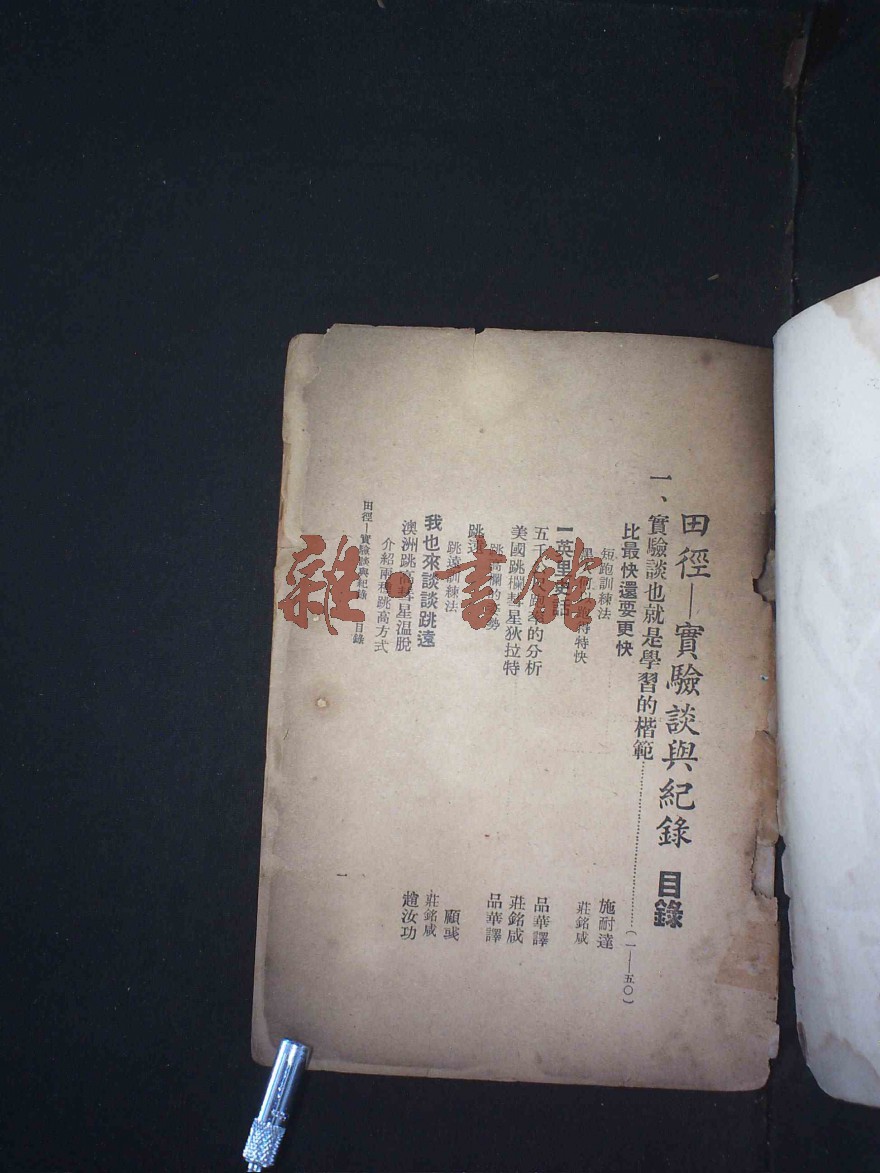 田徑—實驗談與紀錄 目錄
一、實驗談也就是學習的楷範……(一—五〇)
比最快還要更快
短跑訓練法 施耐達
得特快 莊銘咸
一英里
五千 的分析 品華譯
美國跳欄彗星狄拉特 莊銘咸
跳 欄的 勢 品華譯
跳遠
跳遠訓練法 顧彧
我也來談談跳遠 莊銘咸
澳洲跳高彗星溫脫 趙汝功
介紹兩種跳高方式
田徑—實驗談與紀錄 目錄
一
雜·書館